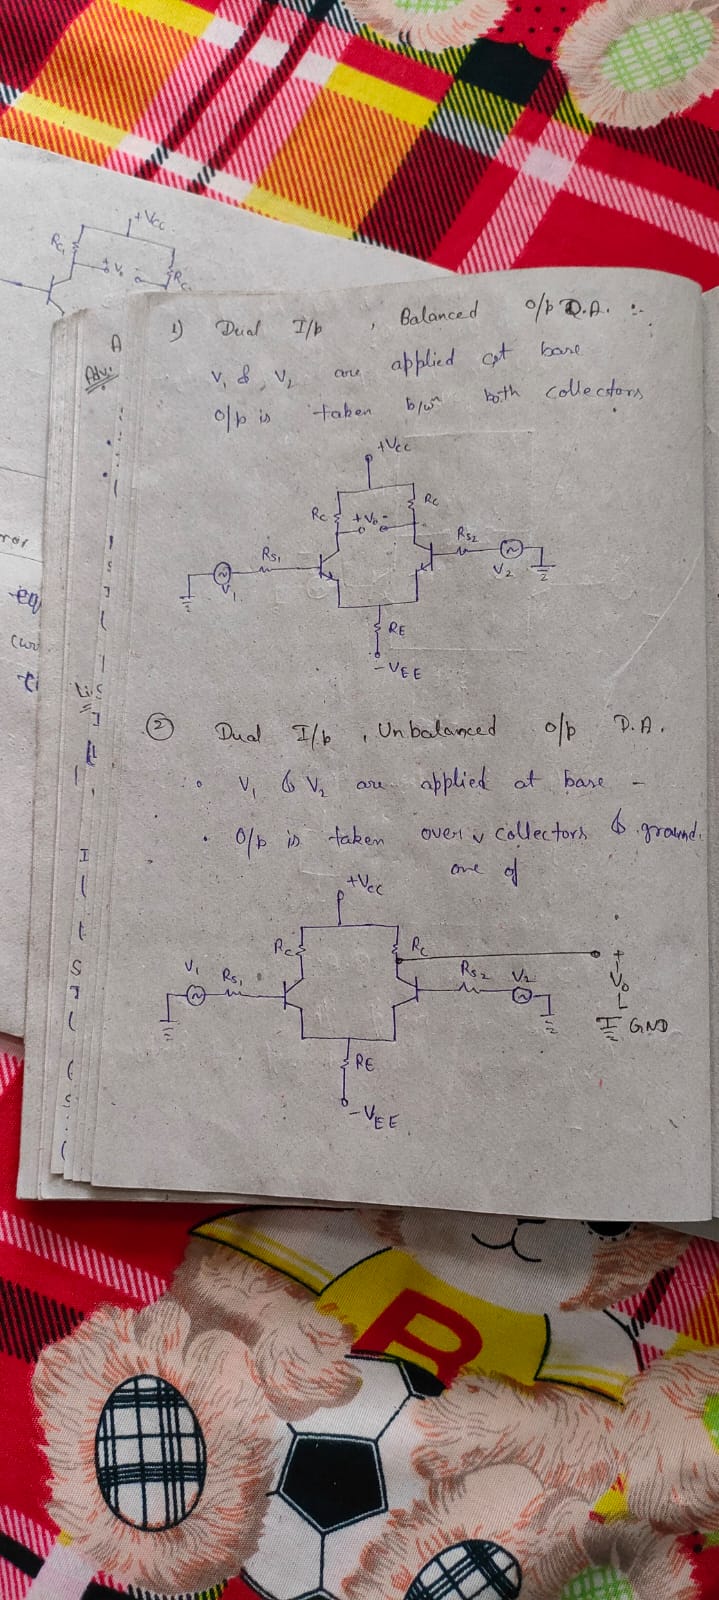 +Vcc
Rc1
+ Vo -
Rc
A
Adv.
1) Dual I/p , Balanced o/p D.A. :-
V1 & V2 are applied at base
o/p is taken b/wn both collectors
+Vcc
Rc + Vo - Rc
Rs1 Rs2
V1 V2
RE
-VEE
② Dual I/p , Unbalanced o/p D.A.
• V1 & V2 are applied at base -
• O/p is taken over one of collectors & ground.
+Vcc
Rc Rc +
V1 Rs1 Rs2 V2 Vo
-
GND
RE
-VEE
B